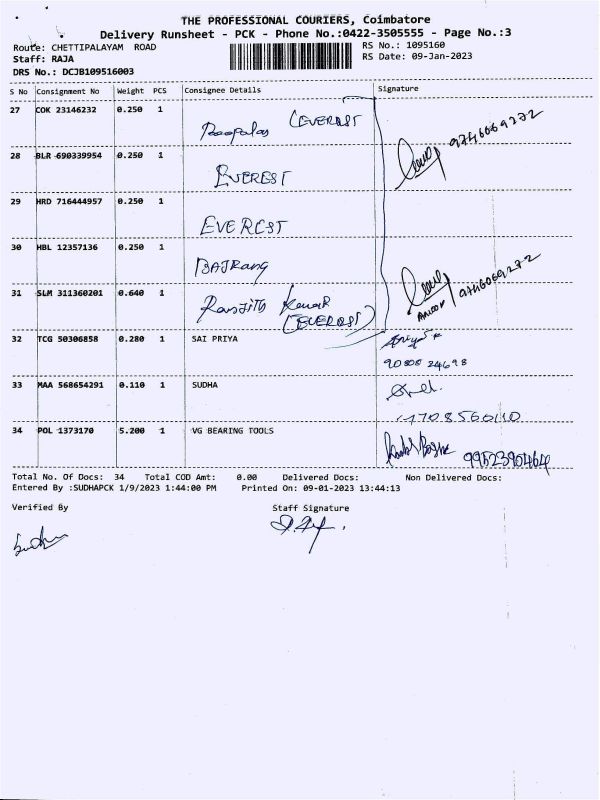 THE PROFESSIONAL COURIERS, Coimbatore
Delivery Runsheet - PCK - Phone No.:0422-3505555 - Page No.:3
Route: CHETTIPALAYAM ROAD RS No.: 1095160
Staff: RAJA RS Date: 09-Jan-2023
DRS No.: DCJB109516003
S No Consignment No Weight PCS Consignee Details Signature
27 COK 23146232 0.250 1 (EVEREST 9746069272
28 BLR 690339954 0.250 1 EVEREST
29 HRD 716444957 0.250 1 EVEREST
30 HBL 12357136 0.250 1 BAJRANG
31 SLM 311360201 0.640 1 Ranjith Kumar 9746069272
(EVEREST)
32 TCG 50306858 0.280 1 SAI PRIYA
90808 24698
33 MAA 568654291 0.110 1 SUDHA
34 POL 1373170 5.200 1 VG BEARING TOOLS
Total No. Of Docs: 34 Total COD Amt: 0.00 Delivered Docs: Non Delivered Docs:
Entered By :SUDHAPCK 1/9/2023 1:44:00 PM Printed On: 09-01-2023 13:44:13
Verified By Staff Signature